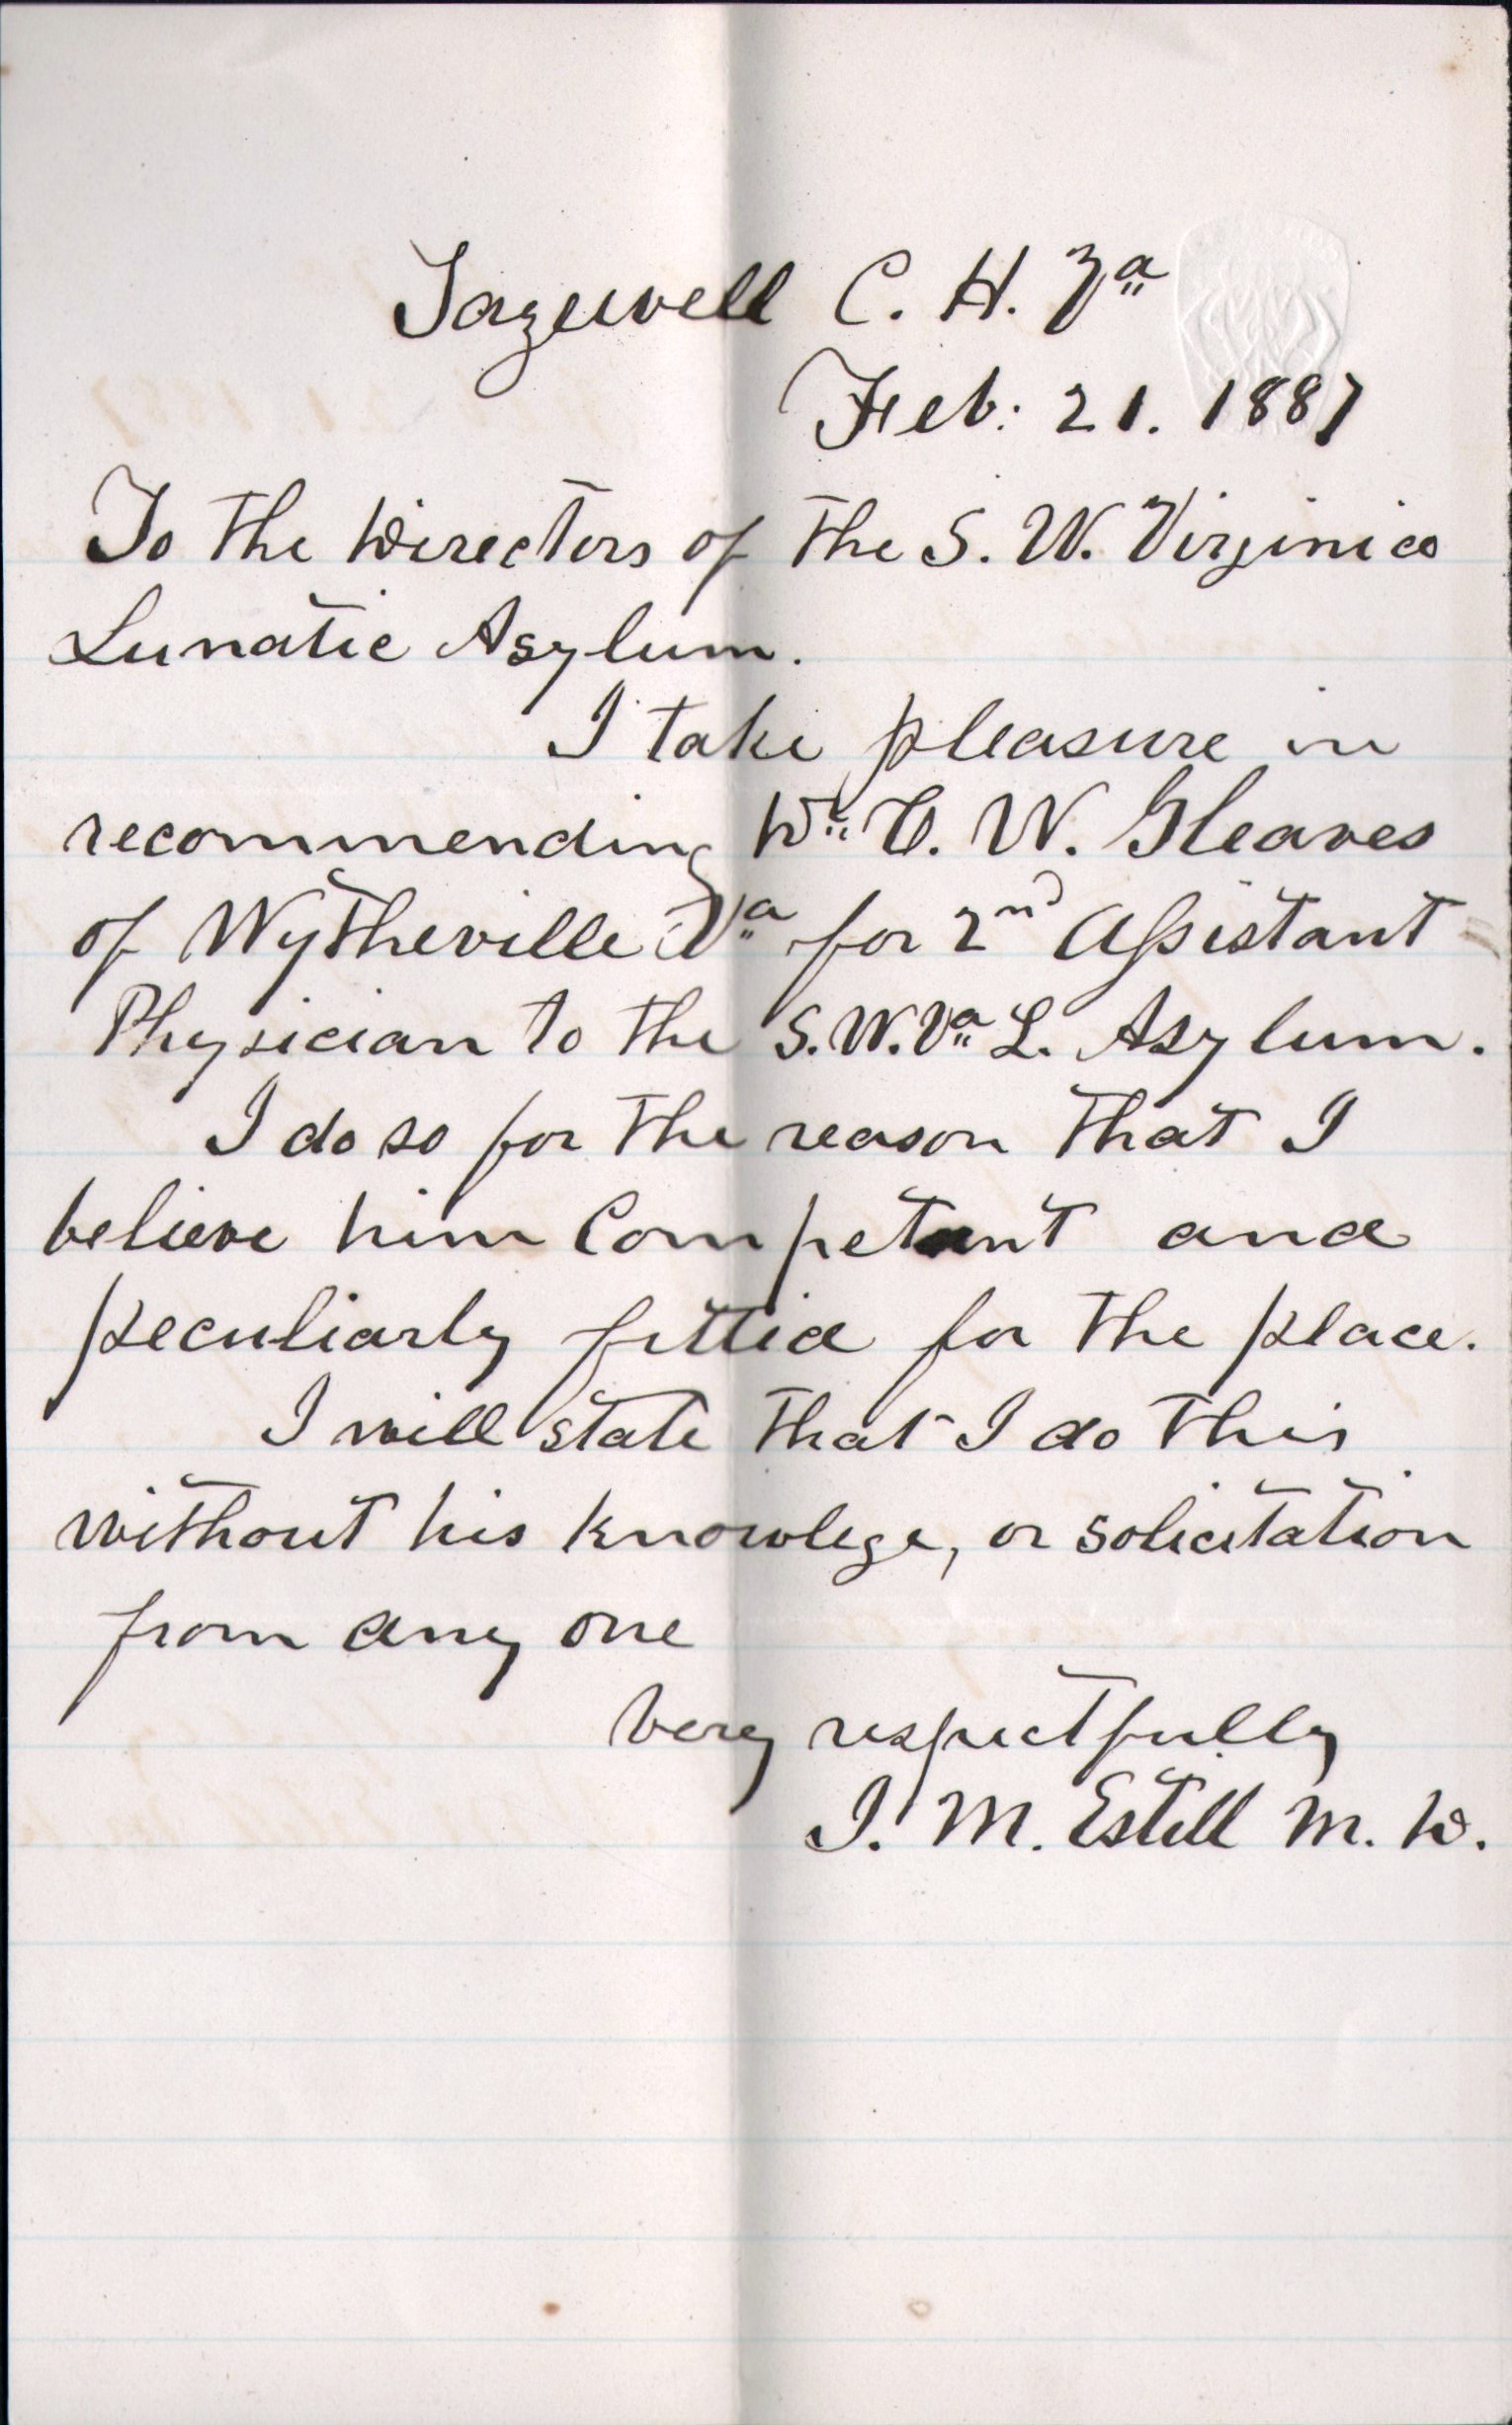 Tazewell C. H. Va
Feb: 21. 1887
To the Directors of the S. W. Virginia
Lunatic Asylum.
I take pleasure in
recommending Dr. C. W. Gleaves
of Wytheville Va for 2nd Assistant
Physician to the S. W. Va L. Asylum.
I do so for the reason that I
believe him Competent and
peculiarly fitted for the place.
I will state that I do this
without his knowlege, or solicitation
from any one
Very respectfully
I. M. Estill M. D.